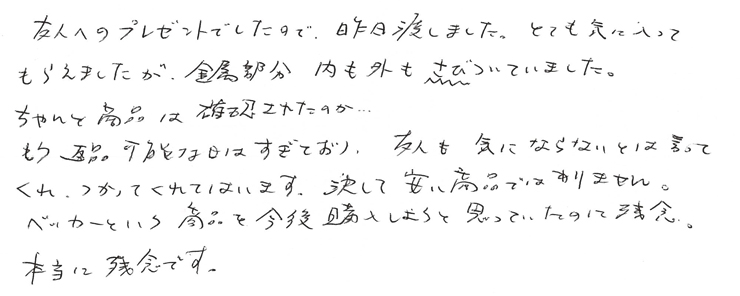 友人へのプレゼントでしたので、昨日渡しました。とても気に入って
もらえましたが、金属部分 内も外も さびついていました。
ちゃんと商品は確認されたのか…
もう返品可能な日はすぎており、友人も気にならないとは言って
くれ、つかってくれてはいます。決して安い商品ではありません。
ベッカーという商品を今後購入しようと思っていたのに残念。
本当に残念です。